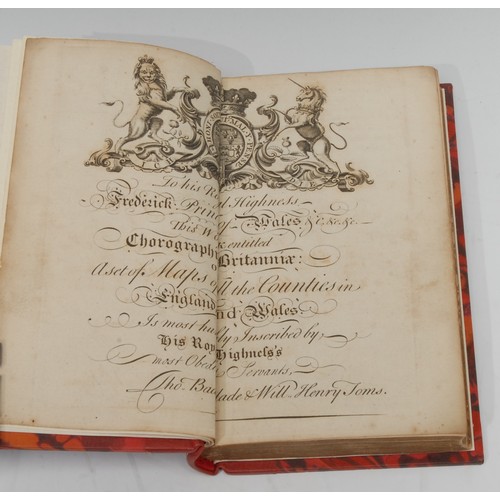 To his R l Highness
Frederick Princ of Wales &c. &c. &c.
This W k entitled
Chorograph Britanniæ:
o
A set of Maps of all the Counties in
England nd Wales
Is most hu ly Inscribed by
His Roy Highness's
most Obed Servants,
Tho. Bad lade & Will. Henry Toms.